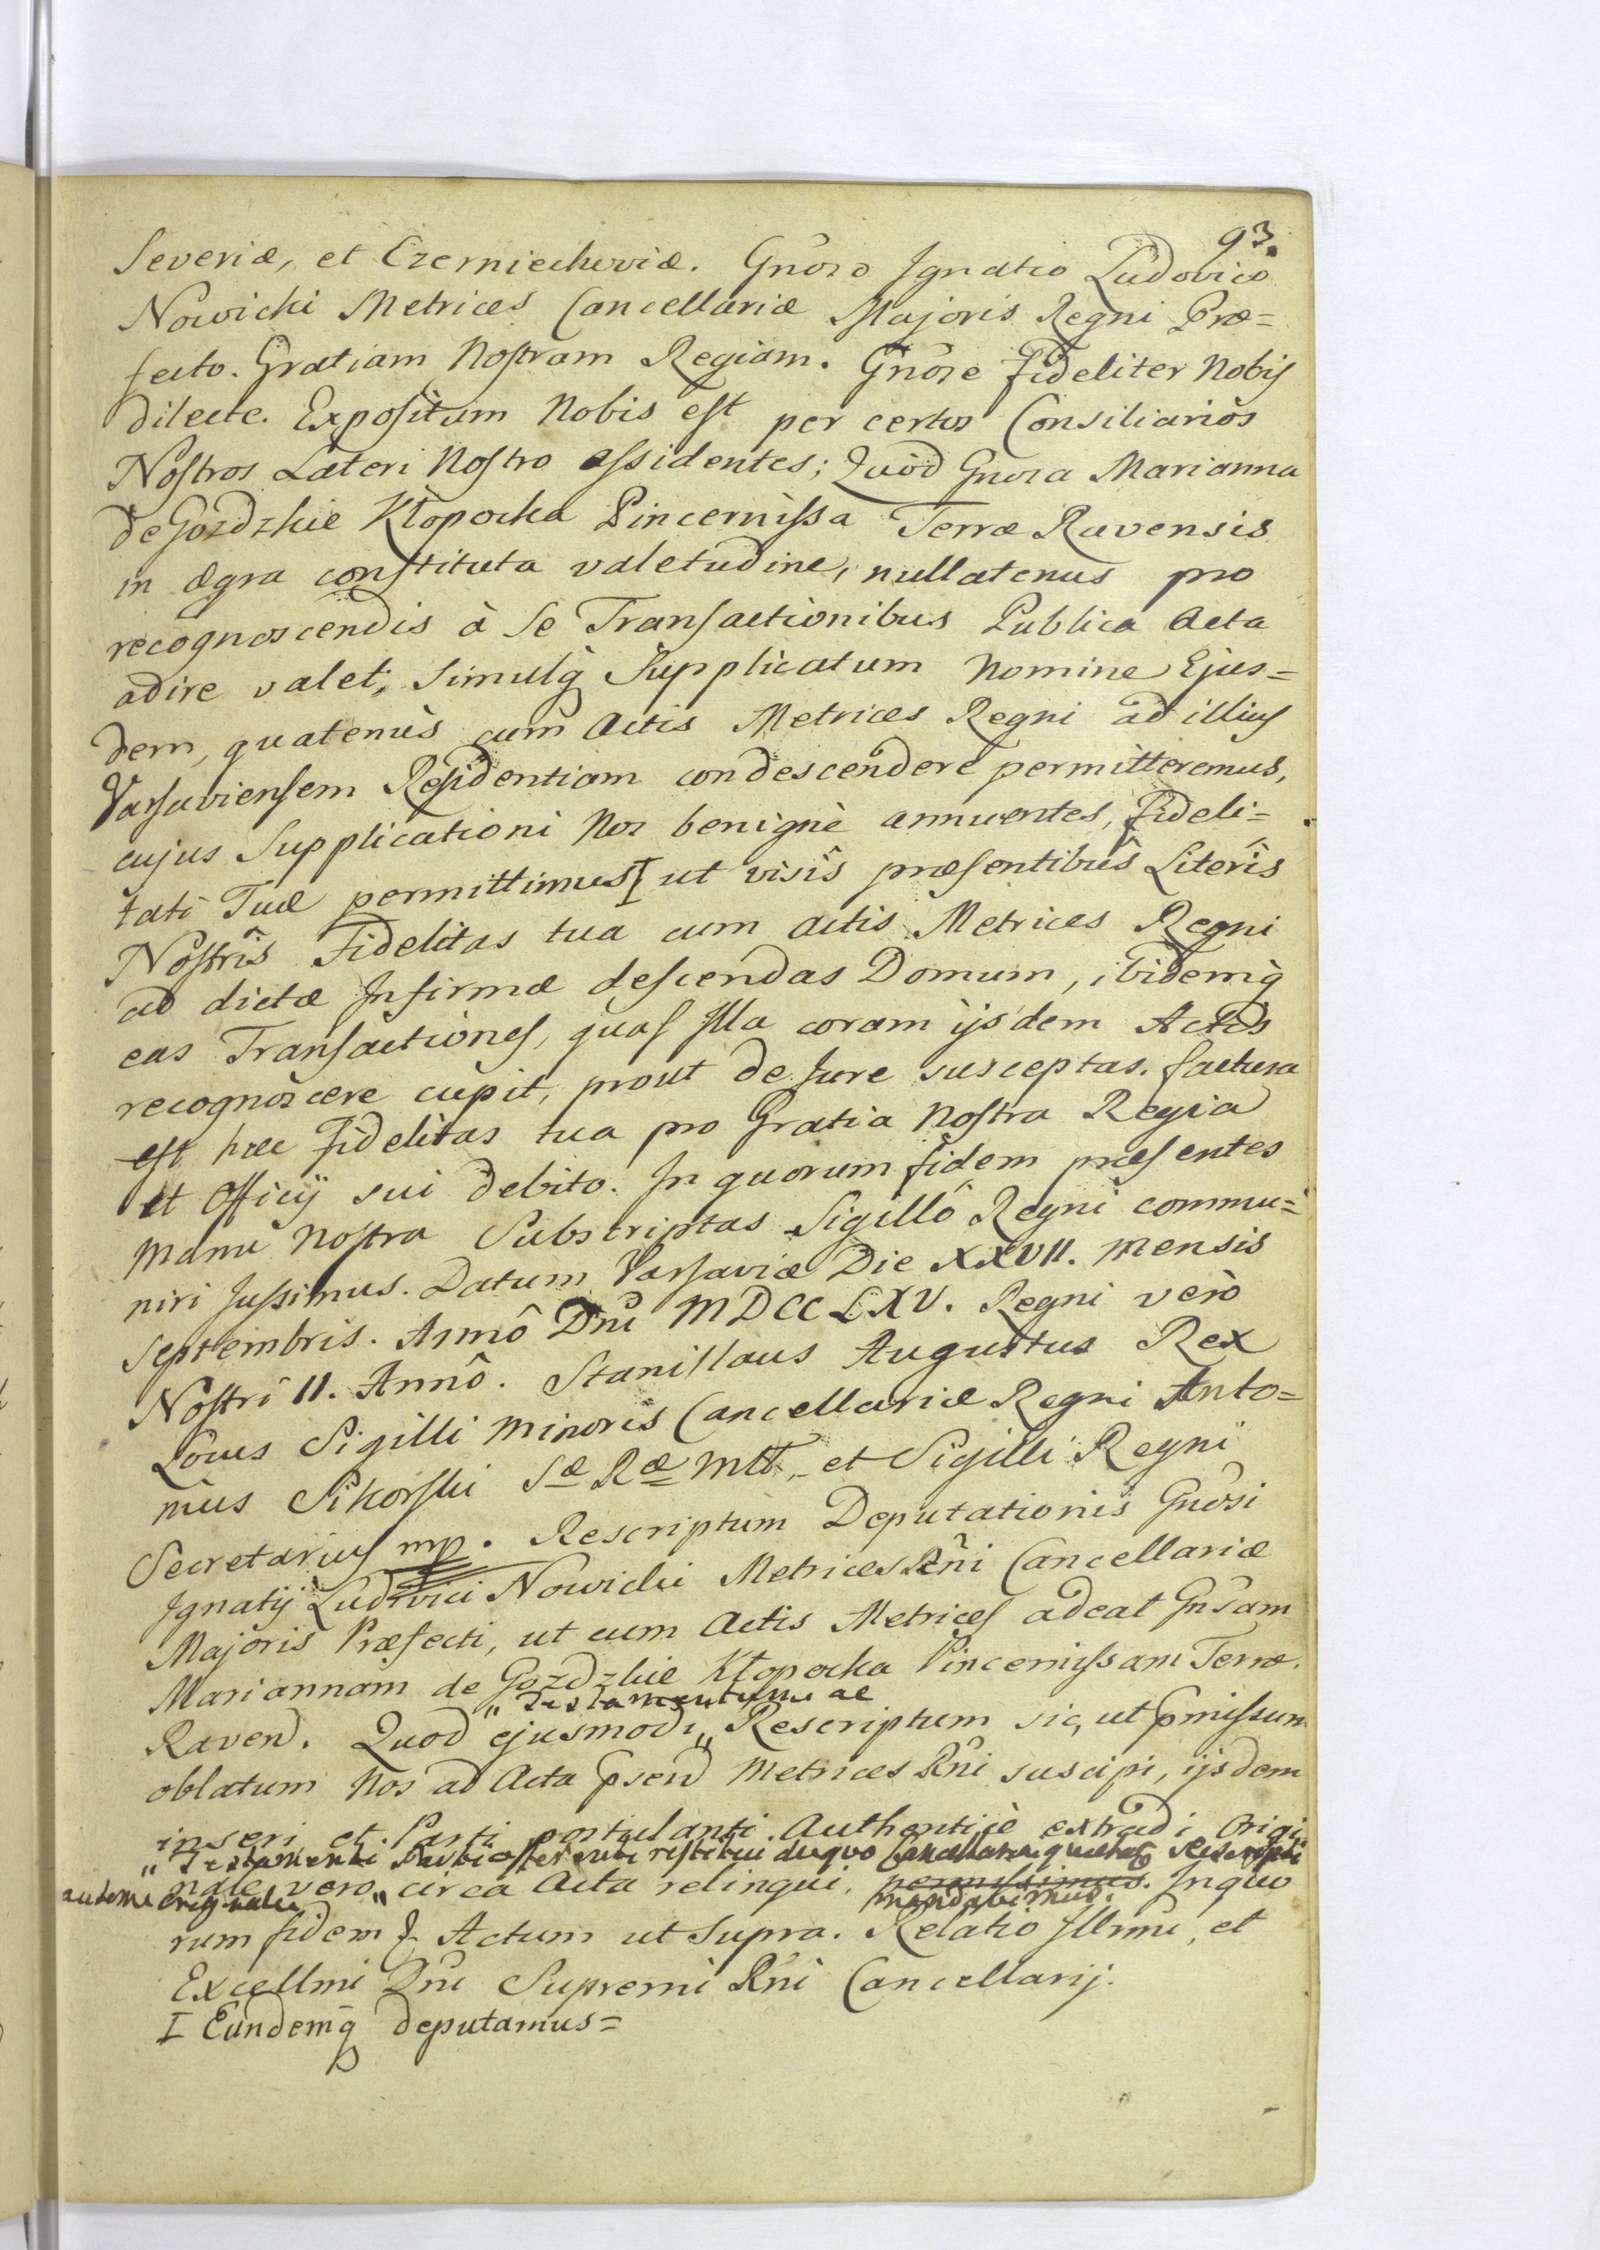 93.
Severiæ, et Czerniechoviæ. Gnõso Ignatio Ludovico
Nowicki Metrices Cancellariæ Majoris Regni Præ=
fecto. Gratiam Nostram Regiam. Gnõse Fideliter Nobis
dilecte. Expositum Nobis est per certos Consiliariôs
Nostros Lateri Nostro assidentes; Quòd Gnosa Marianna
de Gozdzkie Kłopocka Pincernissa Terræ Ravensis
in ægra constituta valetudine, nullatenus pro
recognoscendis à Se Transactionibus Publica Acta
adire valet, Simulq̀ Supplicatum Nomine Ejus=
dem, quatenùs cum Actis Metrices Regni ad illius
Varsaviensem Residentiam condescendere permitteremus,
cujus Supplicationi Nos benignè annuentes, Fideli=
tati Tuæ permittimus I ut visîs præsentibûs Literîs
Nostrîs Fidelitas tua cum actis Metrices Regni
ad dictæ Infirmæ descendas Domum, ibidemq̀
eas Transactiones, quas Illa coram ijsdem Actis
recognoscere cupit, prout de Jure susceptas. factura
est hæc Fidelitas tua pro Gratia Nostra Regia
et Officij sui debito. In quorum fidem præsentes
Manu Nostra Subscriptas Sigillô Regni commu=
niri Jussimus. Datum Varsaviæ Die XXVII. Mensis
Septembris. Annô Dni MDCCLXV. Regni verò
Nostri II. Annô. Stanislaus Augustus Rex
Locus Sigilli Minoris Cancellariæ Regni Anto=
nius Sikorski Sæ Ræ Mtt, et Sigilli Regni
Secretarius mp. Rescriptum Deputationis Gnõsi
Ignatij Ludovici Nowicki Metrices Rñi Cancellariæ
Majoris Præfecti, ut cum Actis Metrices adeat Gnõsam
Mariannam de Gozdzkie Kłopocka Pincernissam Terræ
" Testamentum ac
Raven. Quod ejusmodi " Rescriptum sic, ut pmissum
oblatum Nos ad Acta psen Metrices Rñi suscipi, ijsdem
inseri et Parti postulanti Authenticè extradi Origi
" Testamenti Parti offerenti restitui Rescripti
nale vero " circa Acta relinqui, permissimus. In quo
autem originale mandavimus.
rum fidem & Actum ut Supra. Relatio Illrmi, et
Excellmi Dni Supremi Rñi Cancellarij.
I Eundemq̃ deputamus=